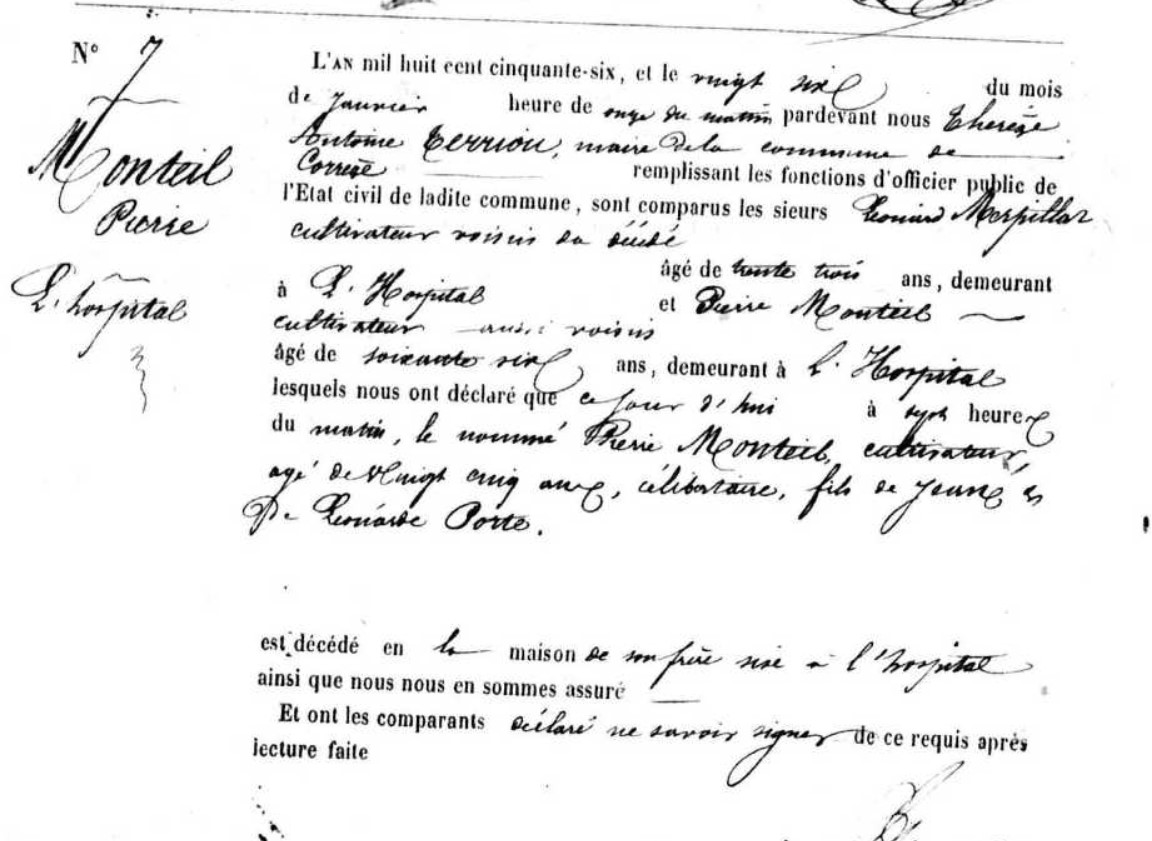 N° 7
Monteil
Pierre
L'hospital
L'AN mil huit cent cinquante-six, et le vingt six du mois
de Janvier heure de onze du matin pardevant nous Thereze
Antoine Terriou, maire dela commune de
Correze remplissant les fonctions d'officier public de
l'Etat civil de ladite commune, sont comparus les sieurs Leonard Merpillar
cultivateur voisin du décédé
âgé de trente trois ans, demeurant
à L'Hospital et Pierre Monteil
cultivateur aussi voisin
âgé de soixante six ans, demeurant à L'Hospital
lesquels nous ont déclaré que ce jour d'hui à sept heures
du matin, le nommé Pierre Monteil, cultivateur,
agé de vingt cinq ans, célibataire, fils de Jean et
De Léonarde Porte.
est décédé en la maison de son frère sise à l'hospital
ainsi que nous nous en sommes assuré
Et ont les comparants déclaré ne savoir signer de ce requis après
lecture faite